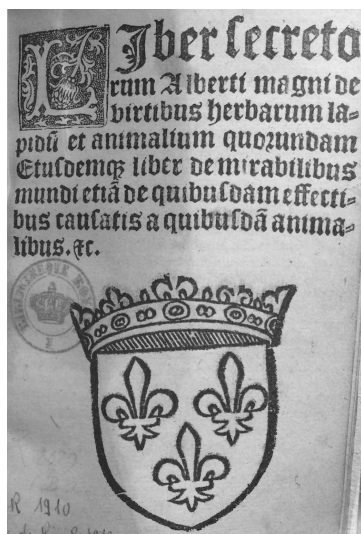 Liber secreto
rum Alberti magni de
virtibus herbarum la⸗
pidū et animalium quorundam
Eiusdemqꝫ liber de mirabilibus
mundi etiā de quibusdam effecti⸗
bus causatis a quibusdā anima⸗
libus. ⁊c.
R 1910